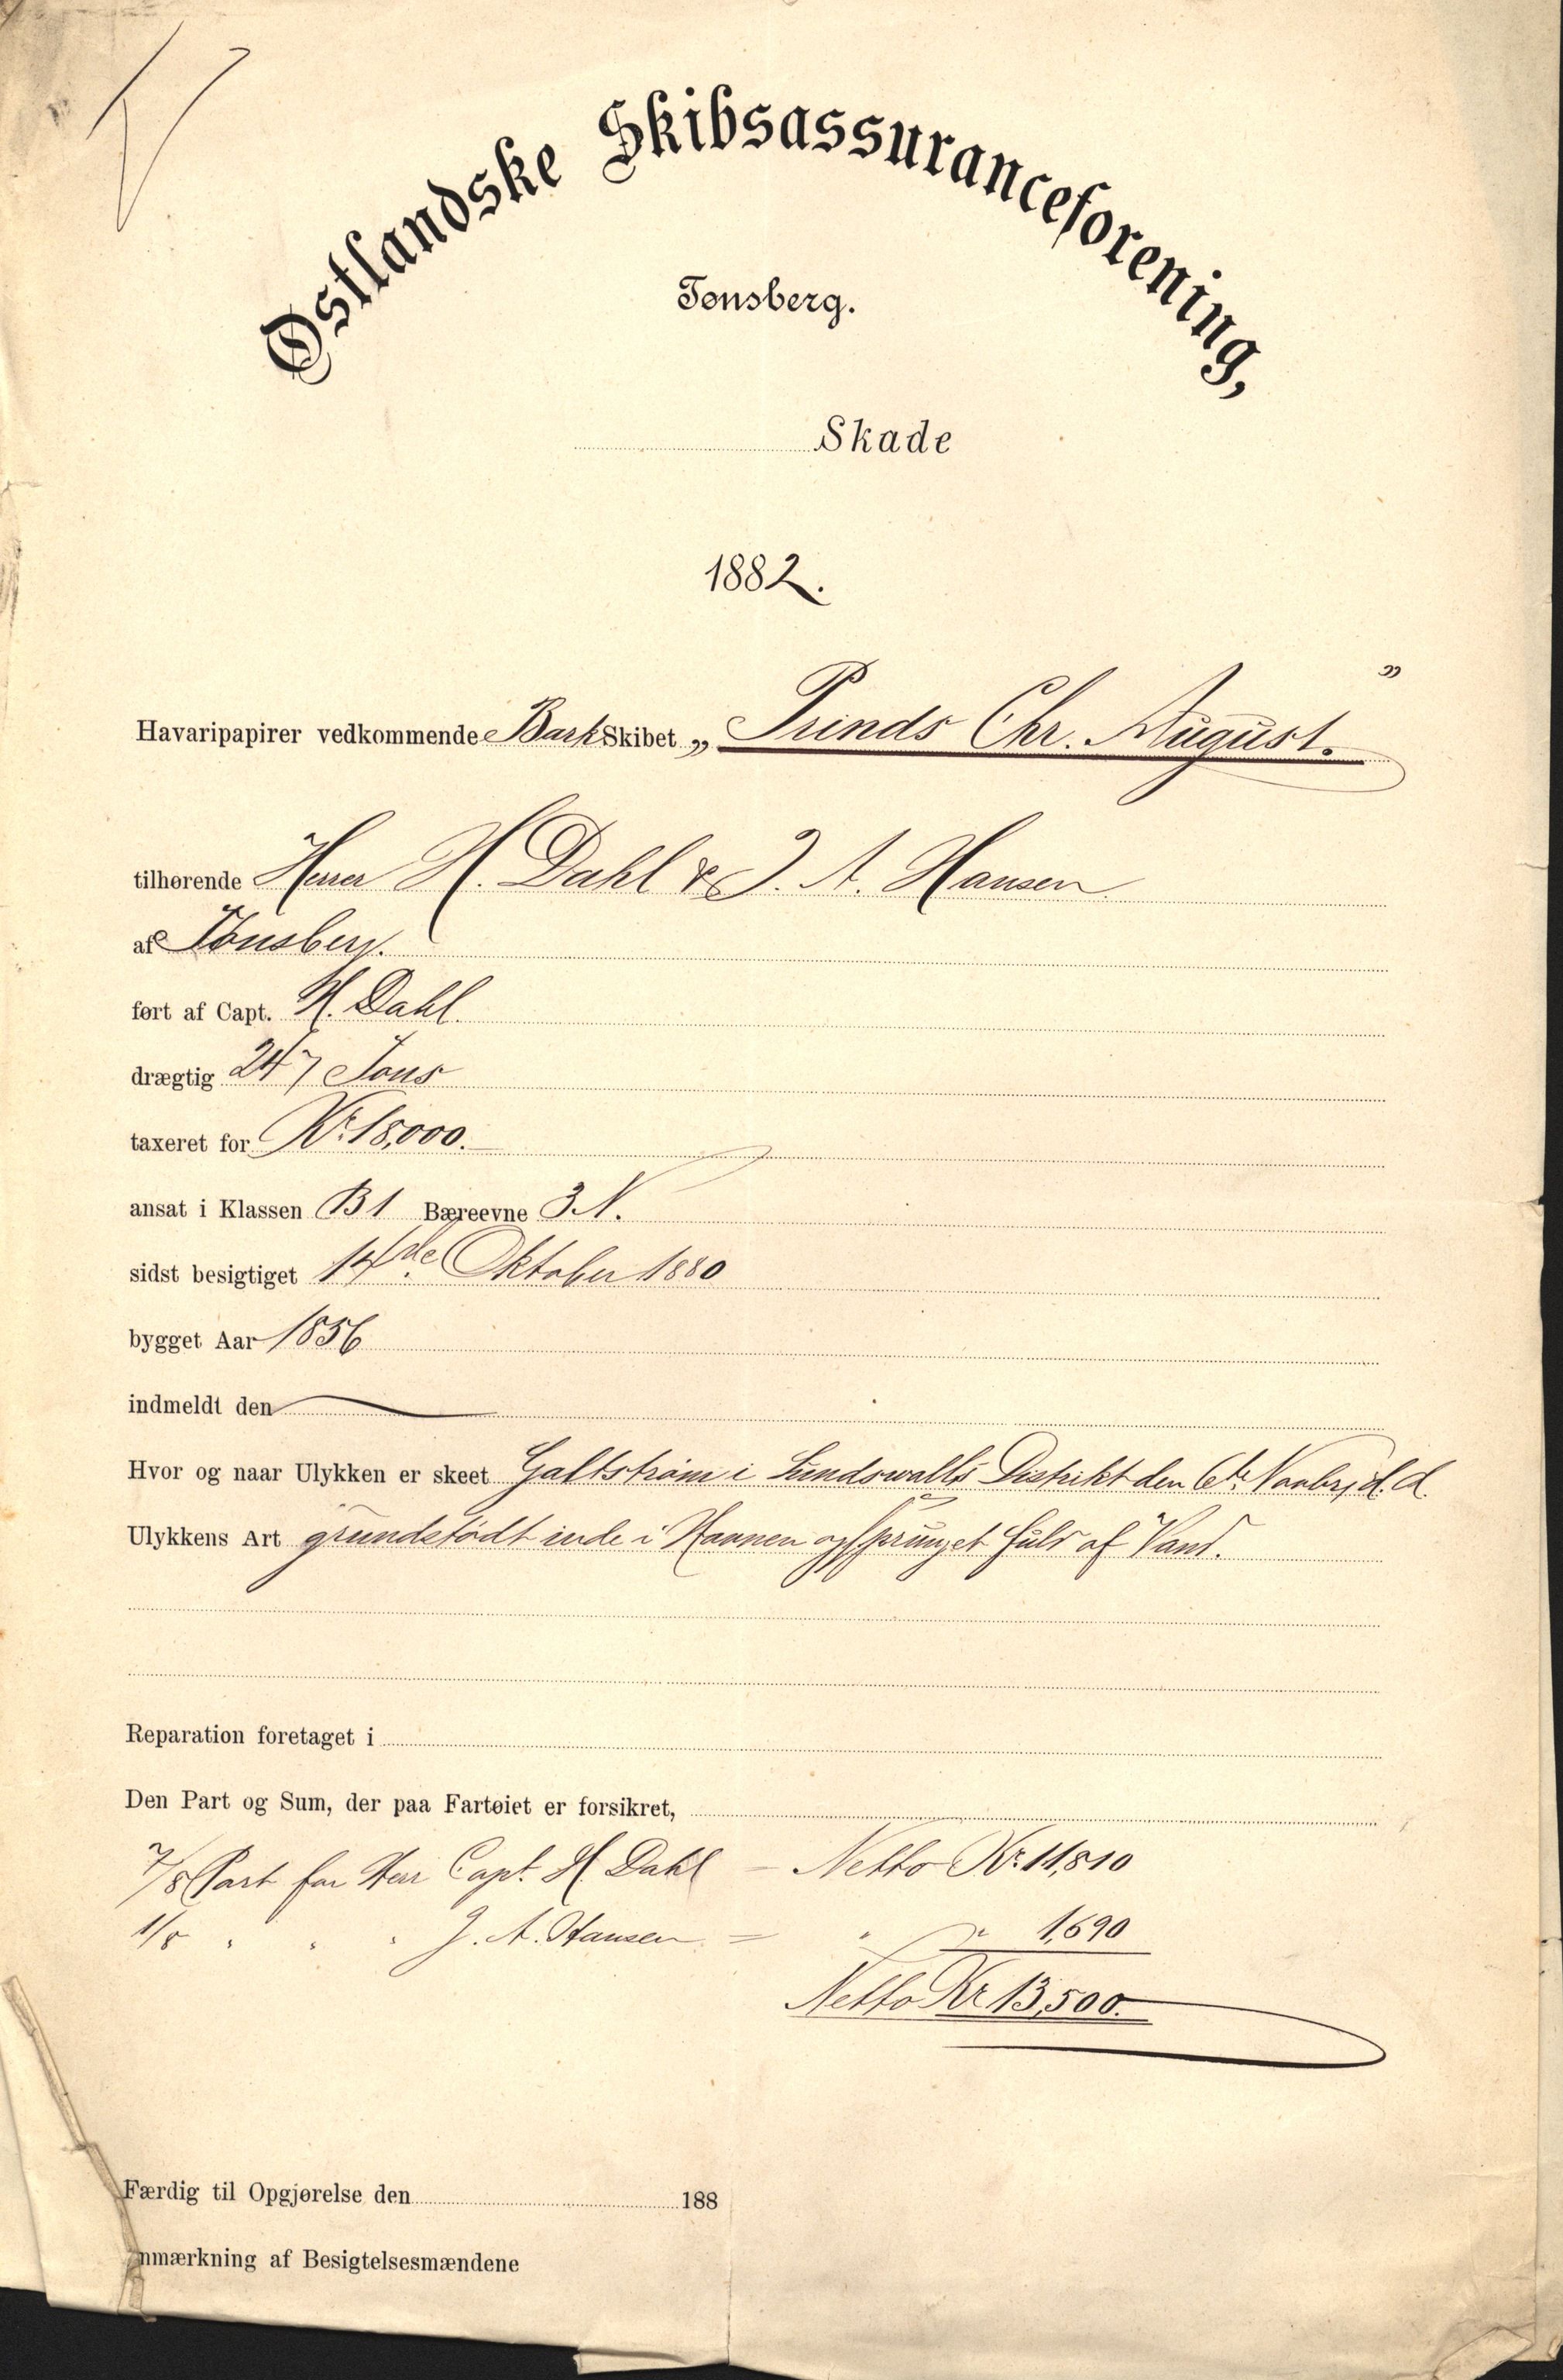 Østlandske Skibsassuranceforening,
Tønsberg.
Skade
1882.
Havaripapirer vedkommende Bark Skibet „Prinds Chr. August."
tilhørende Herrer H. Dahl & J. A. Hansen
af Tönsberg.
ført af Capt. H. Dahl.
drægtig 247 Tons
taxeret for Kr. 18,000.
ansat i Klassen B1 Bæreevne 3 N.
sidst besigtiget 14de Oktober 1880
bygget Aar 1856
indmeldt den
Hvor og naar Ulykken er skeet Galtström i Sundswalls Distrikt den 6te Novbr, d. A.
Ulykkens Art grundstødt inde i Havnen og sprunget fuld af Vand.
Reparation foretaget i
Den Part og Sum, der paa Fartøiet er forsikret,
7/8 Part for Herr Capt. H. Dahl – Netto Kr. 11,810
1/8 " " " J. A. Hansen = " " 1,690
Netto Kr 13,500.
Færdig til Opgjørelse den 188
nmærkning af Besigtelsesmændene